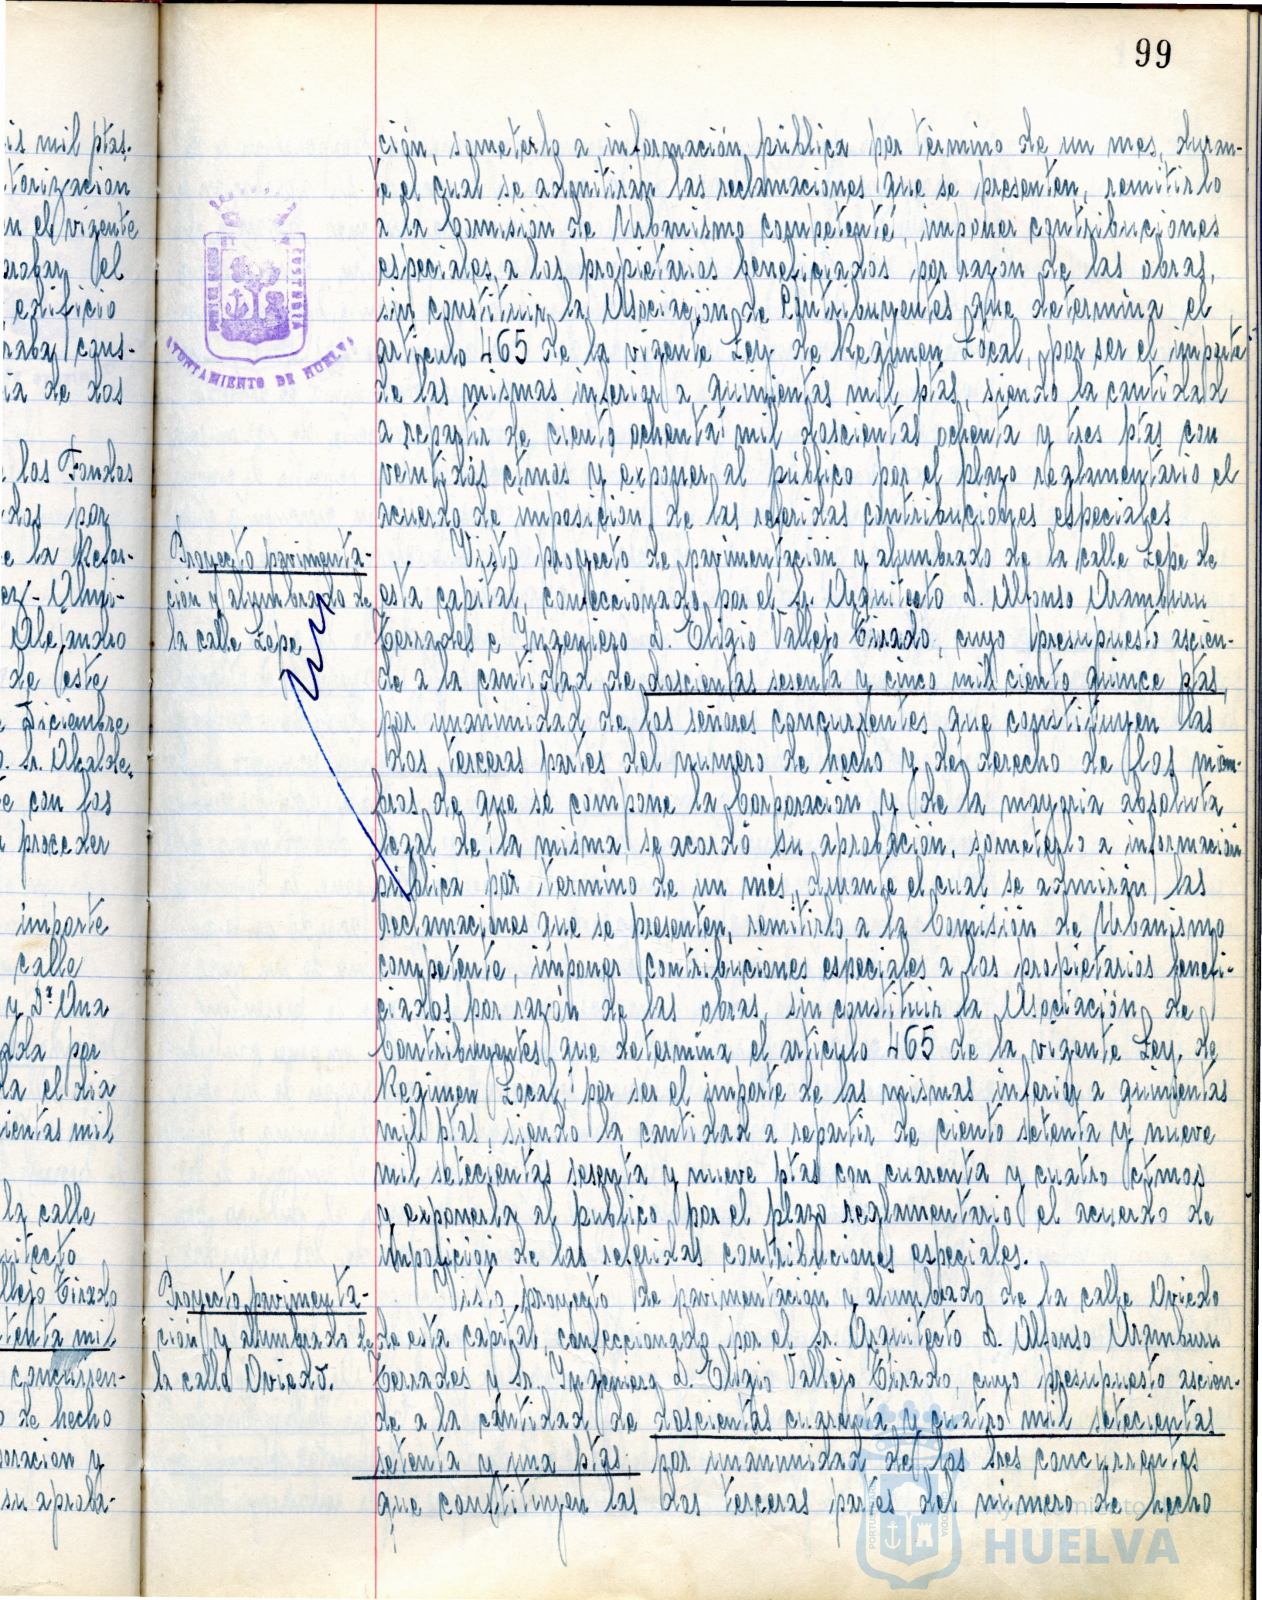 99
is mil ptas.
torizacion
en el vigente
probar el
edificio
cons-
ia de dos
los Fondos
das por
e la Refor-
Alejandro
de este
e Diciembre
D. Sr. Alcalde,
te con los
proceder
importe
calle
y Dª Ana
ada por
da el dia
cientas mil
la calle
uitecto
llejo Tirado
tenta mil
concurren-
o de hecho
poracion y
su aproba-
PORTUS MARIS ET TERRAE CUSTODIA
AYUNTAMIENTO DE HUELVA
ción, someterlo a información pública por término de un mes, duran-
te el cual se admitirán las reclamaciones que se presenten, remitirlo
a la Comisión de Urbanismo competente, imponer contribuciones
especiales a los propietarios beneficiados por razón de las obras,
sin constituir la Asociación de Contribuyentes que determina el
artículo 465 de la vigente Ley de Regimen Local, por ser el importe
de las mismas inferior a quinientas mil ptas, siendo la cantidad
a repartir de ciento ochenta mil doscientas ochenta y tres ptas con
veintidós ctmos y exponer al público por el plazo reglamentario el
acuerdo de imposición de las referidas contribuciones especiales
Proyecto pavimenta-
ción y alumbrado de
la calle Lepe
Visto proyecto de pavimentación y alumbrado de la calle Lepe de
esta capital, confeccionado por el Sr. Arquitecto D. Alfonso Aramburu
Terrades e Ingeniero D. Eligio Vallejo Tirado, cuyo presupuesto ascien-
de a la cantidad de doscientas sesenta y cinco mil ciento quince ptas,
por unanimidad de los señores concurrentes que constituyen las
dos terceras partes del numero de hecho y de derecho de los miem-
bros de que se compone la Corporación y de la mayoria absoluta
legal de la misma, se acordó su aprobación, someterlo a información
pública por termino de un mes, durante el cual se admirán las
reclamaciones que se presenten, remitirlo a la Comisión de Urbanismo
competente, imponer contribuciones especiales a los propietarios benefi-
ciados por razón de las obras, sin constituir la Asociación de
Contribuyentes que determina el artículo 465 de la vigente Ley de
Regimen Local, por ser el importe de las mismas inferior a quinientas
mil ptas, siendo la cantidad a repartir de ciento setenta y nueve
mil setecientas sesenta y nueve ptas con cuarenta y cuatro ctmos
y exponerla al publico por el plazo reglamentario el acuerdo de
imposición de las referidas contribuciones especiales.
Proyecto pavimenta-
ción y alumbrado de
la calle Oviedo.
Visto proyecto de pavimentación y alumbrado de la calle Oviedo
de esta capital, confeccionado por el Sr. Arquitecto D. Alfonso Aramburu
Terrades y Sr. Ingeniero D. Eligio Vallejo Tirado, cuyo presupuesto ascien-
de a la cantidad de doscientas cuarenta y cuatro mil setecientas
setenta y una ptas; por unanimidad de los sres concurrentes
que constituyen las dos terceras partes del número de hecho
Ayuntamiento
HUELVA